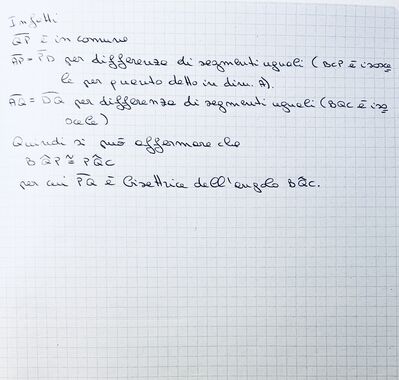 Infatti
QP è in comune
AP = PD per differenza di segmenti uguali (BCP è isosce
le per quanto detto in dim. A).
AQ = DQ per differenza di segmenti uguali (BQC è iso
scele)
Quindi si può affermare che
BQ̂P ≅ PQ̂C
per cui PQ è bisettrice dell'angolo BQ̂C.